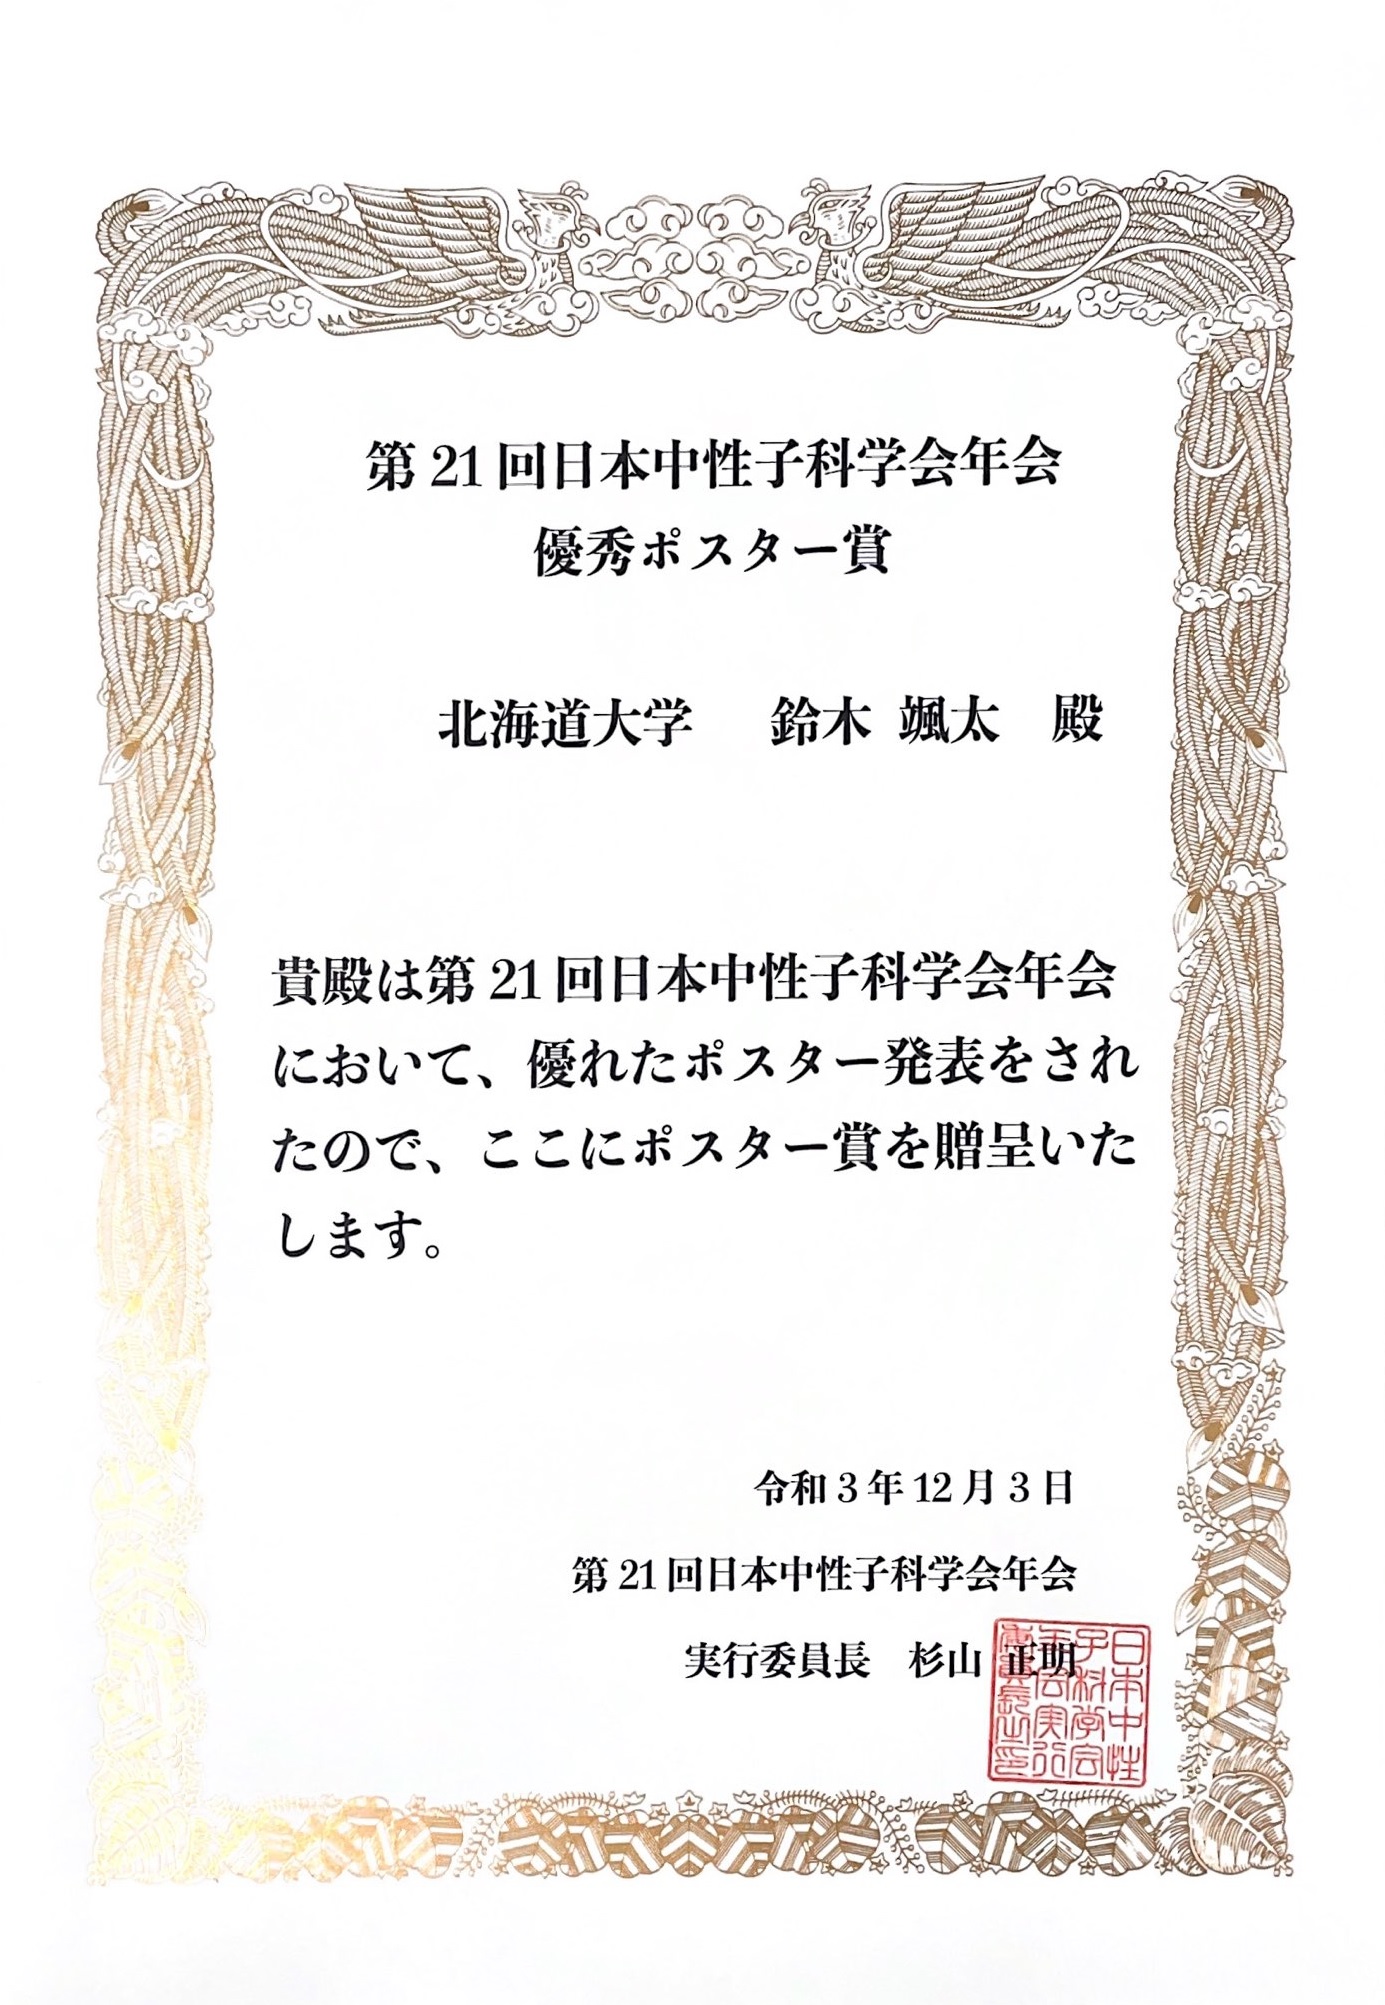 第 21 回日本中性子科学会年会
優秀ポスター賞
北海道大学　鈴木 颯太　殿
貴殿は第 21 回日本中性子科学会年会
において、優れたポスター発表をされ
たので、ここにポスター賞を贈呈いた
します。
令和 3 年 12 月 3 日
第 21 回日本中性子科学会年会
実行委員長　杉山 正明
日本中性
子科学会
年会実行
委員長之印